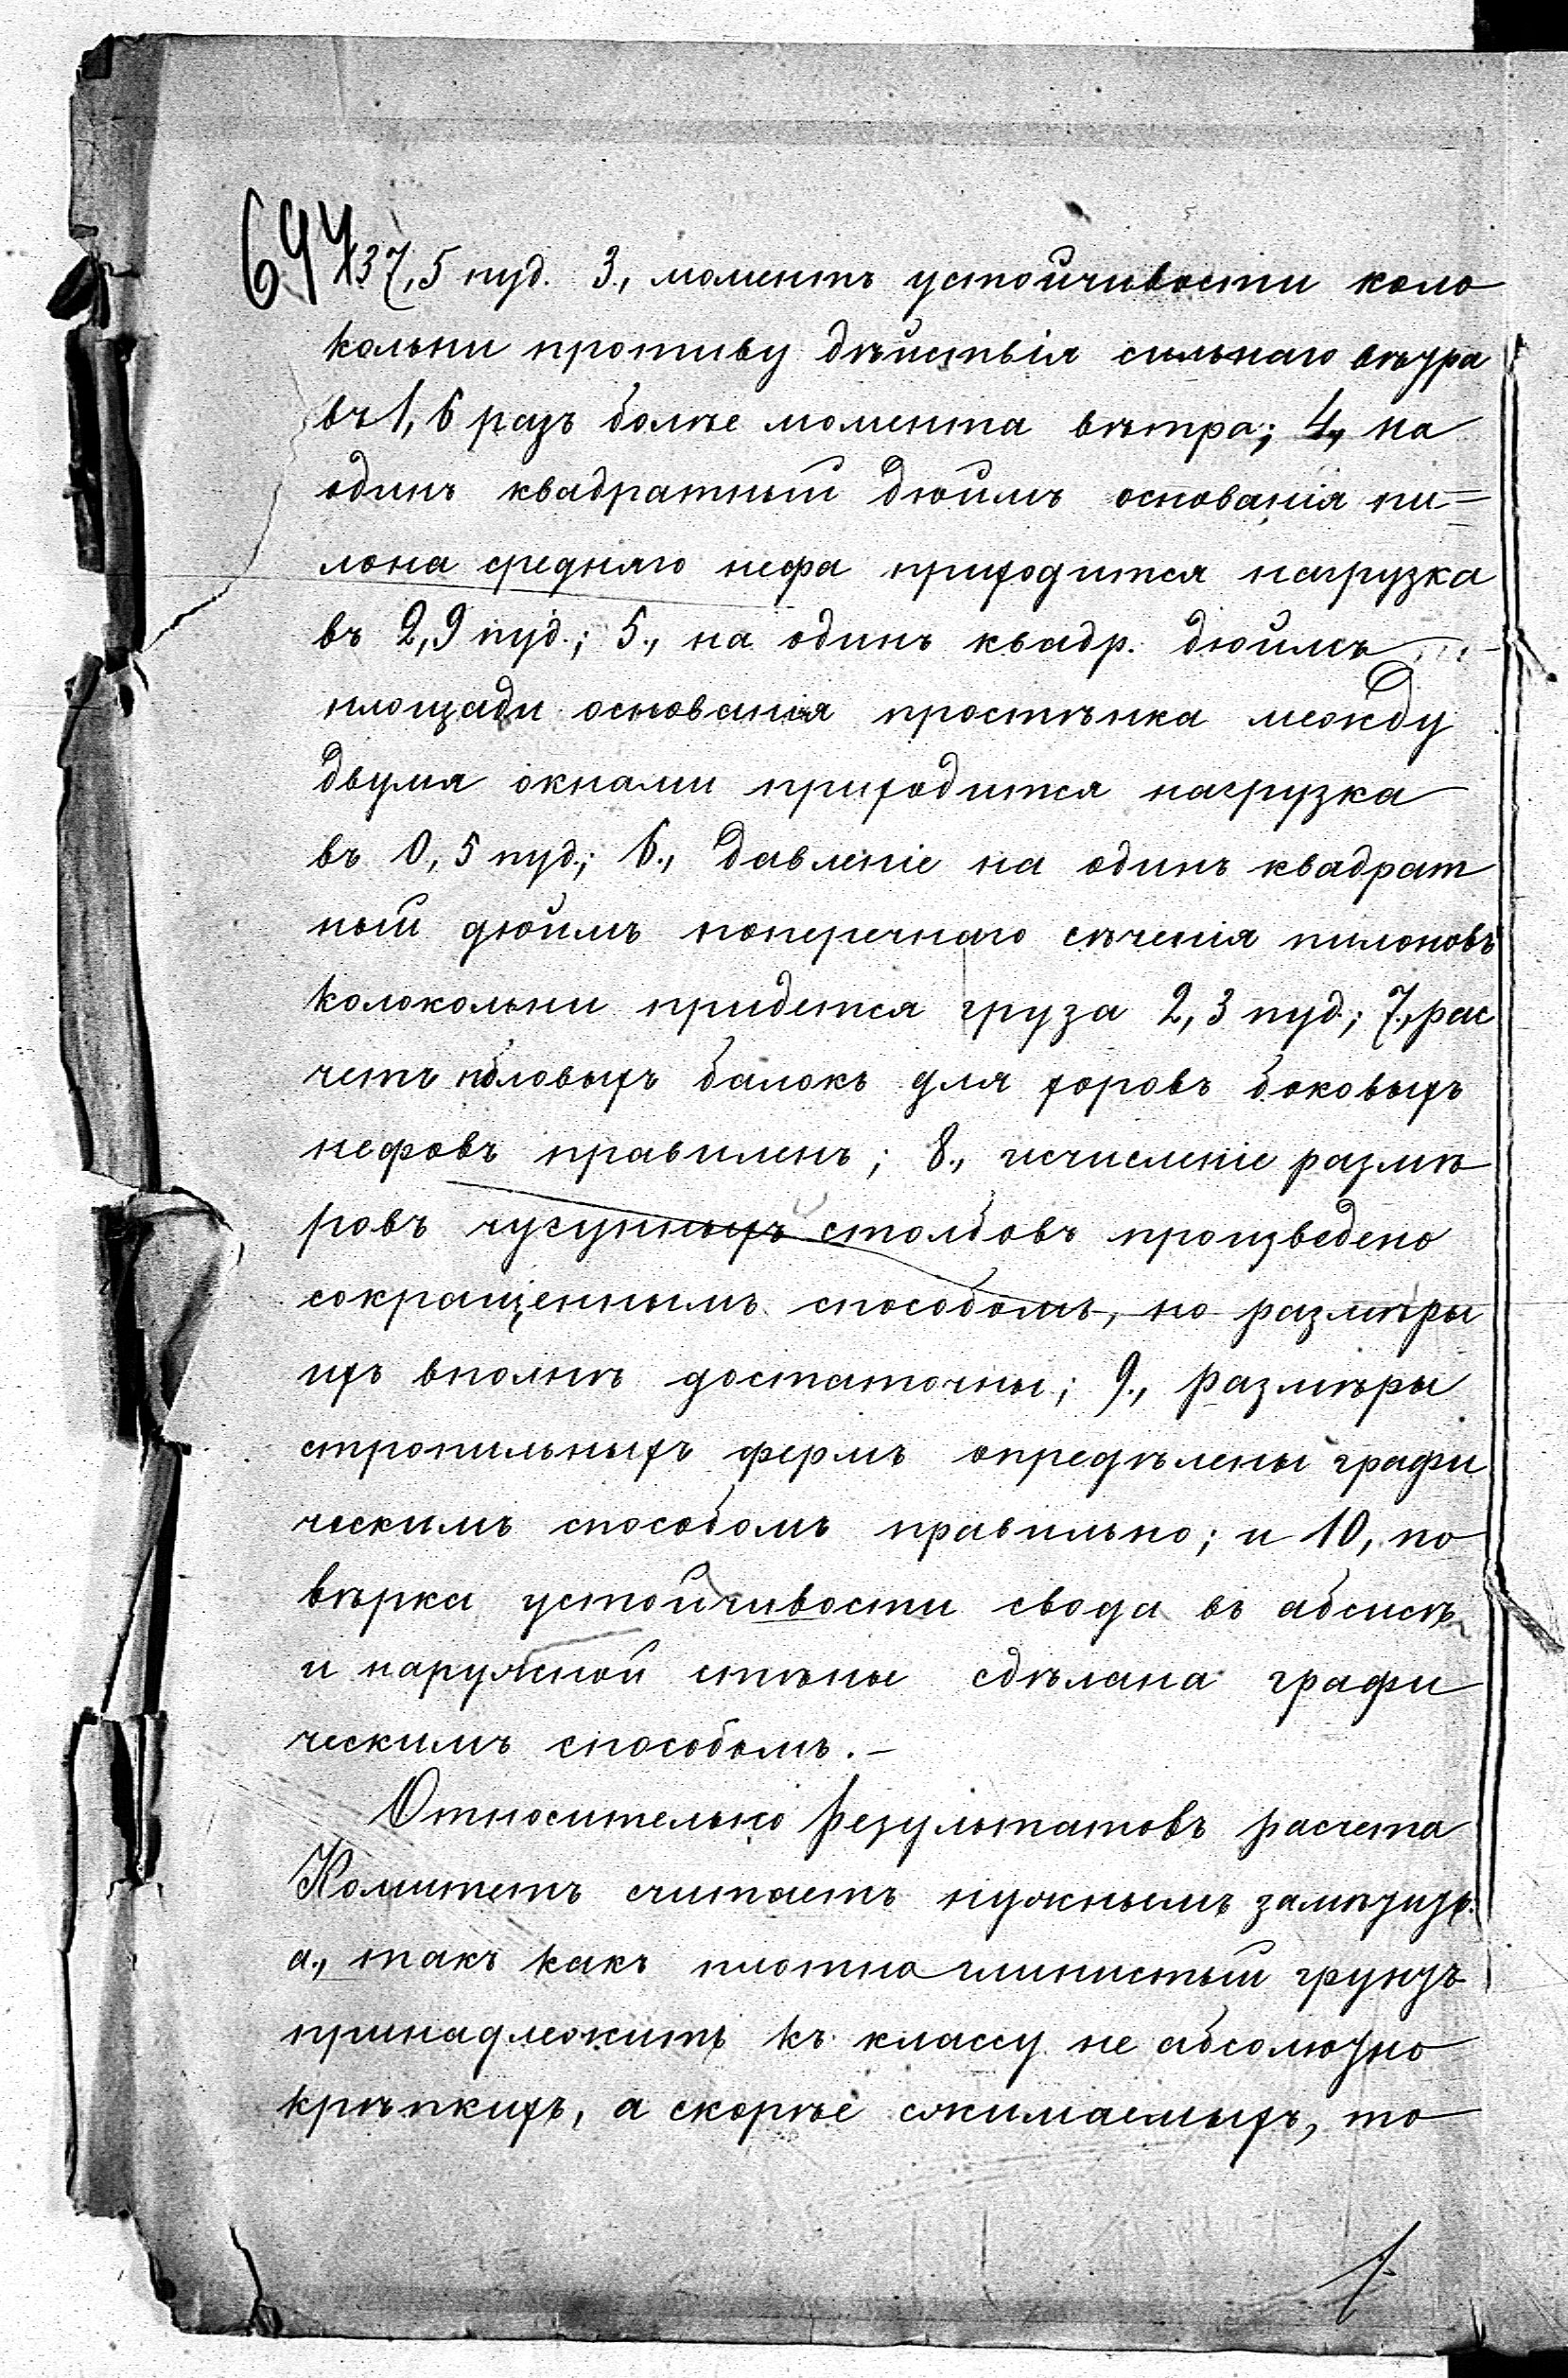 694
37,5 пуд. 3., моментъ устойчивости коло
кольни противу дѣйствія сильнаго вѣтра
въ 1,6 разъ болѣе момента вѣтра; 4, на
одинъ квадратный дюймъ основанія пи=
лона средняго нефа приходится нагрузка
въ 2,9 пуд.; 5., на одинъ квадр. дюймъ
площади основанія простѣнка между
двумя окнами приходится нагрузка
въ 0,5 пуд.; 6., давленіе на одинъ квадрат
ный дюймъ поперечнаго сѣченія пилоновъ
колокольни придется груза 2,3 пуд.; 7., рас
четъ половыхъ балокъ для хоровъ боковыхъ
нефовъ правиленъ; 8., исчисленіе размѣ
ровъ чугунныхъ столбовъ произведено
сокращеннымъ способомъ, но размѣры
ихъ вполнѣ достаточны; 9., размѣры
стропильныхъ фермъ опредѣлены графи
ческимъ способомъ правильно; и 10, по
вѣрка устойчивости свода въ абсисѣ
и наружной стѣны сдѣлана графи
ческимъ способомъ.—
Относительно результатовъ расчета
Комитетъ считаетъ нужнымъ замѣтить:
а., такъ какъ плотно глинистый грунтъ
принадлежитъ къ классу не абсолютно
крѣпкихъ, а скорѣе сжимаемыхъ, то